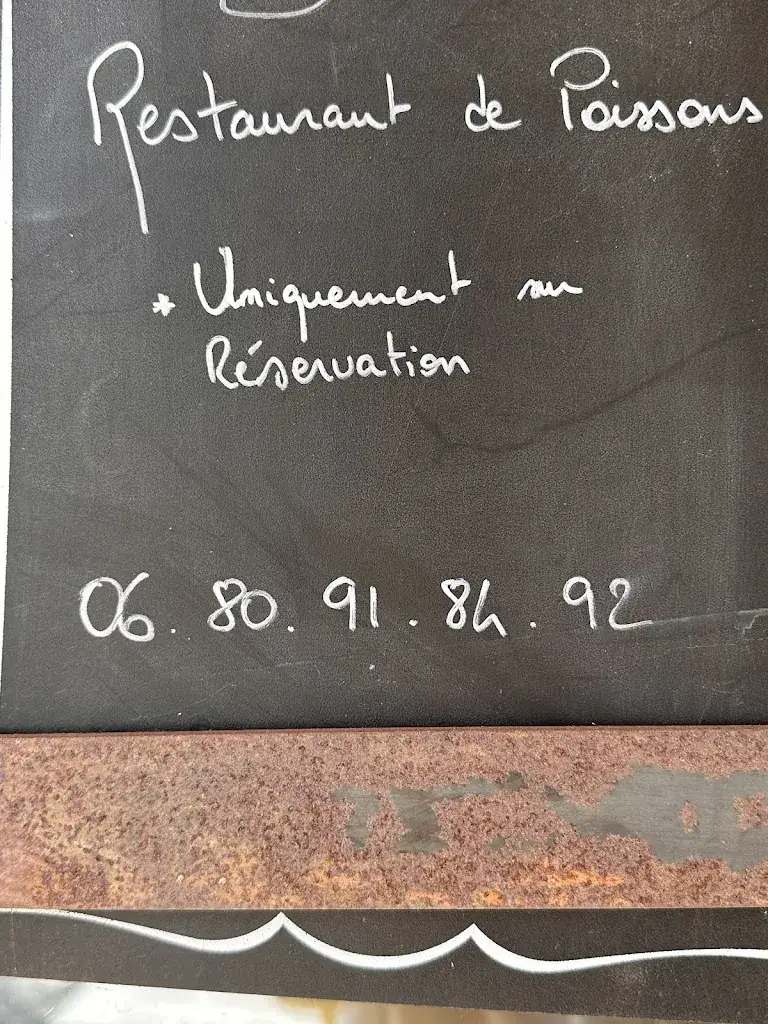 Restaurant de Poissons
* Uniquement sur
Réservation
06. 80. 91. 84. 92